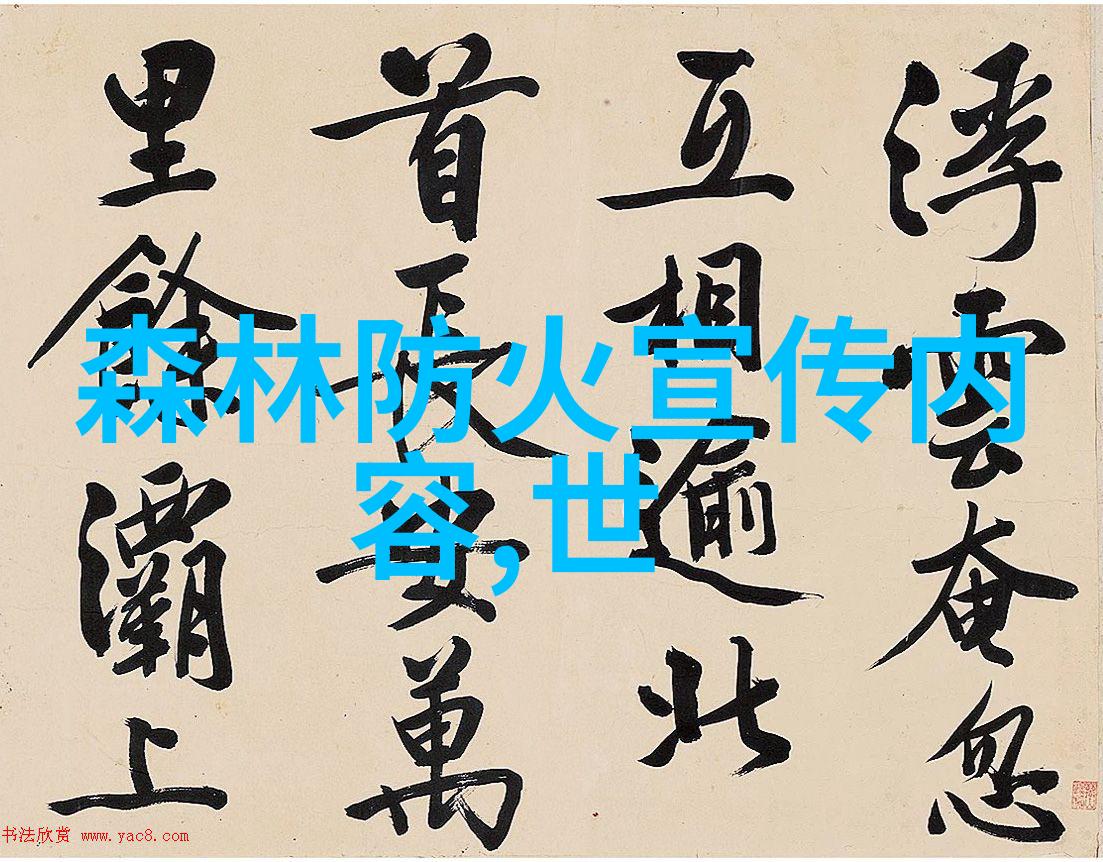 浮雲奄忽
互相逾此
首長安萬
里餘灞上
森林防火宣传内
容,世
书法欣赏 www.yac8.com